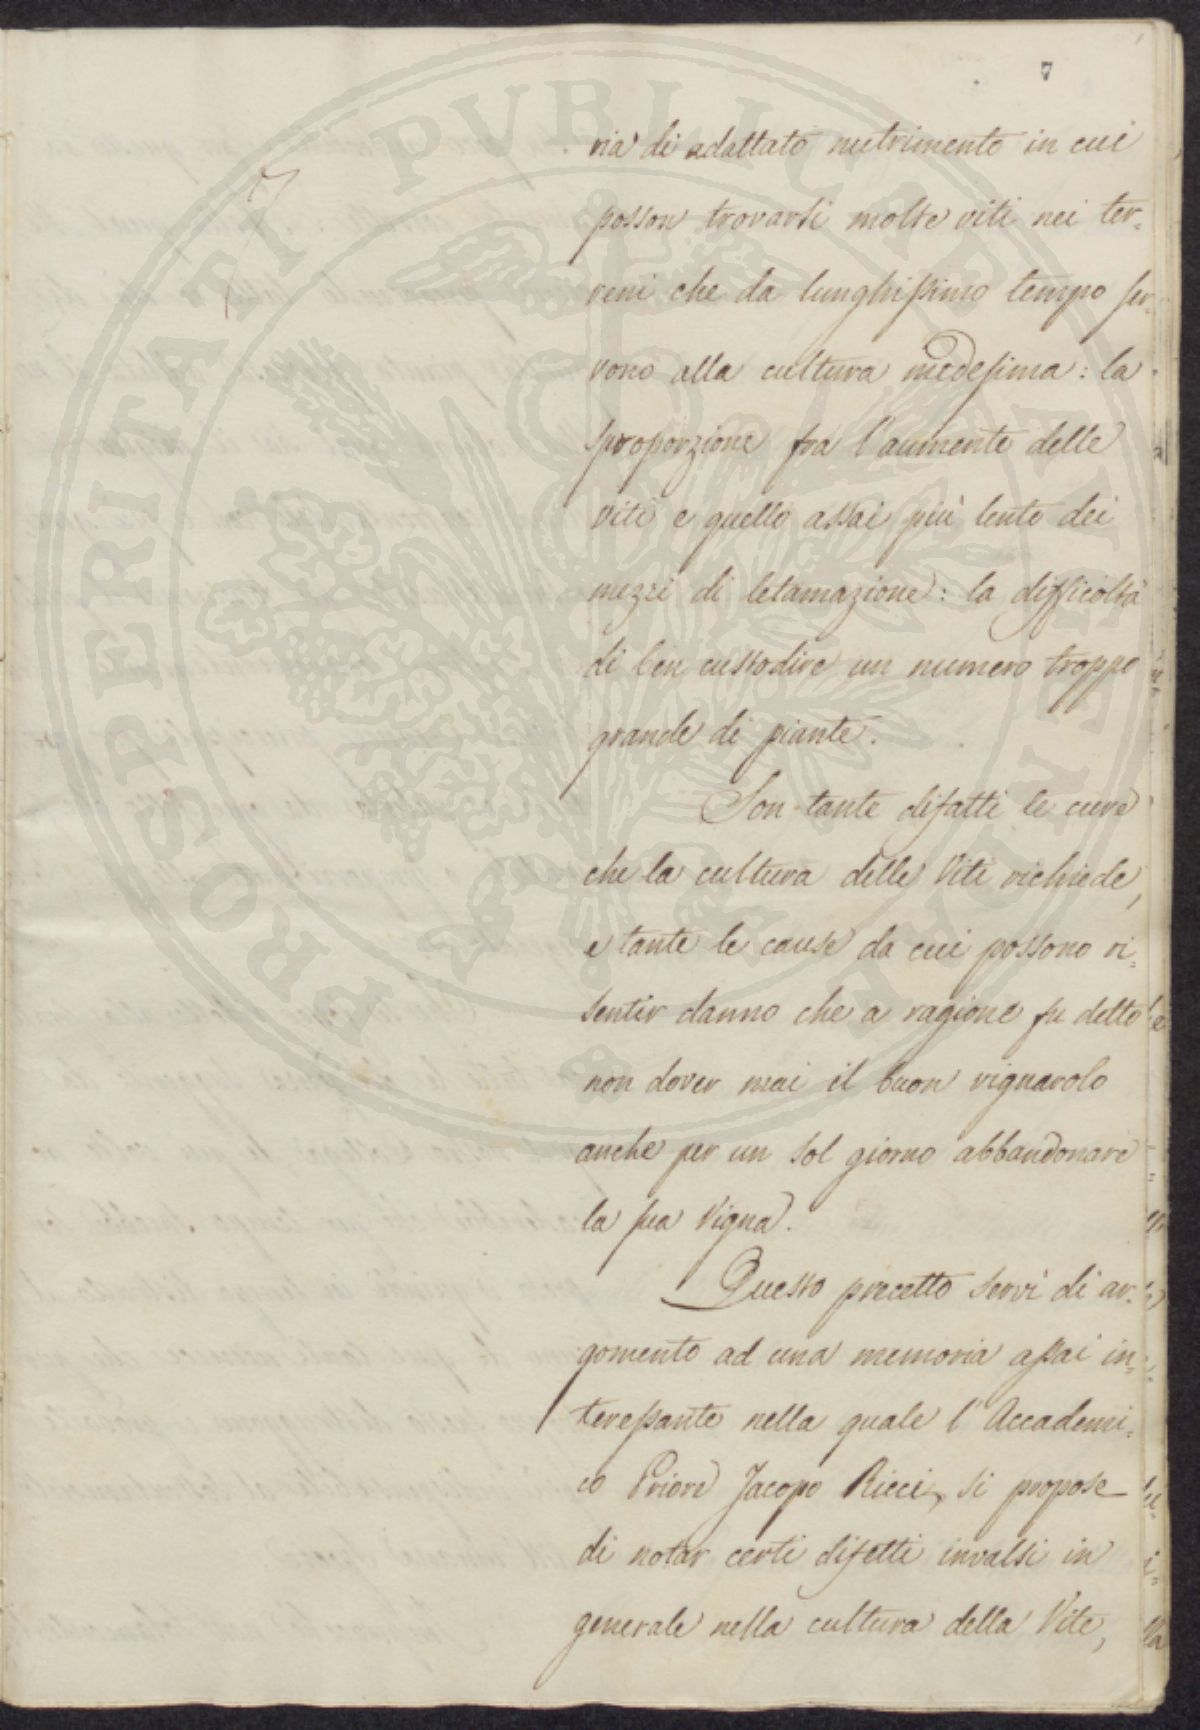 7
7
ria di adattato nutrimento in cui
posson trovarsi molte viti nei ter=
reni che da lunghissimo tempo ser=
vono alla cultura medesima: la
sproporzione fra l'aumento delle
viti e quello assai più lento dei
mezzi di letamazione: la difficoltà
di ben custodire un numero troppo
grande di piante.
Son tante difatti le cure
che la cultura delle Viti richiede,
e tante le cause da cui possono ri=
sentir danno che a ragione fu detto
non dover mai il buon vignarolo
anche per un sol giorno abbandonare
la sua Vigna.
Questo precetto servì di ar=
gomento ad una memoria assai in=
teressante nella quale l'Accademi=
co Priore Jacopo Ricci, si propose
di notar certi difetti invalsi in
generale nella cultura della Vite,
PROSPERITATI PVBLICAE AVGENDAE